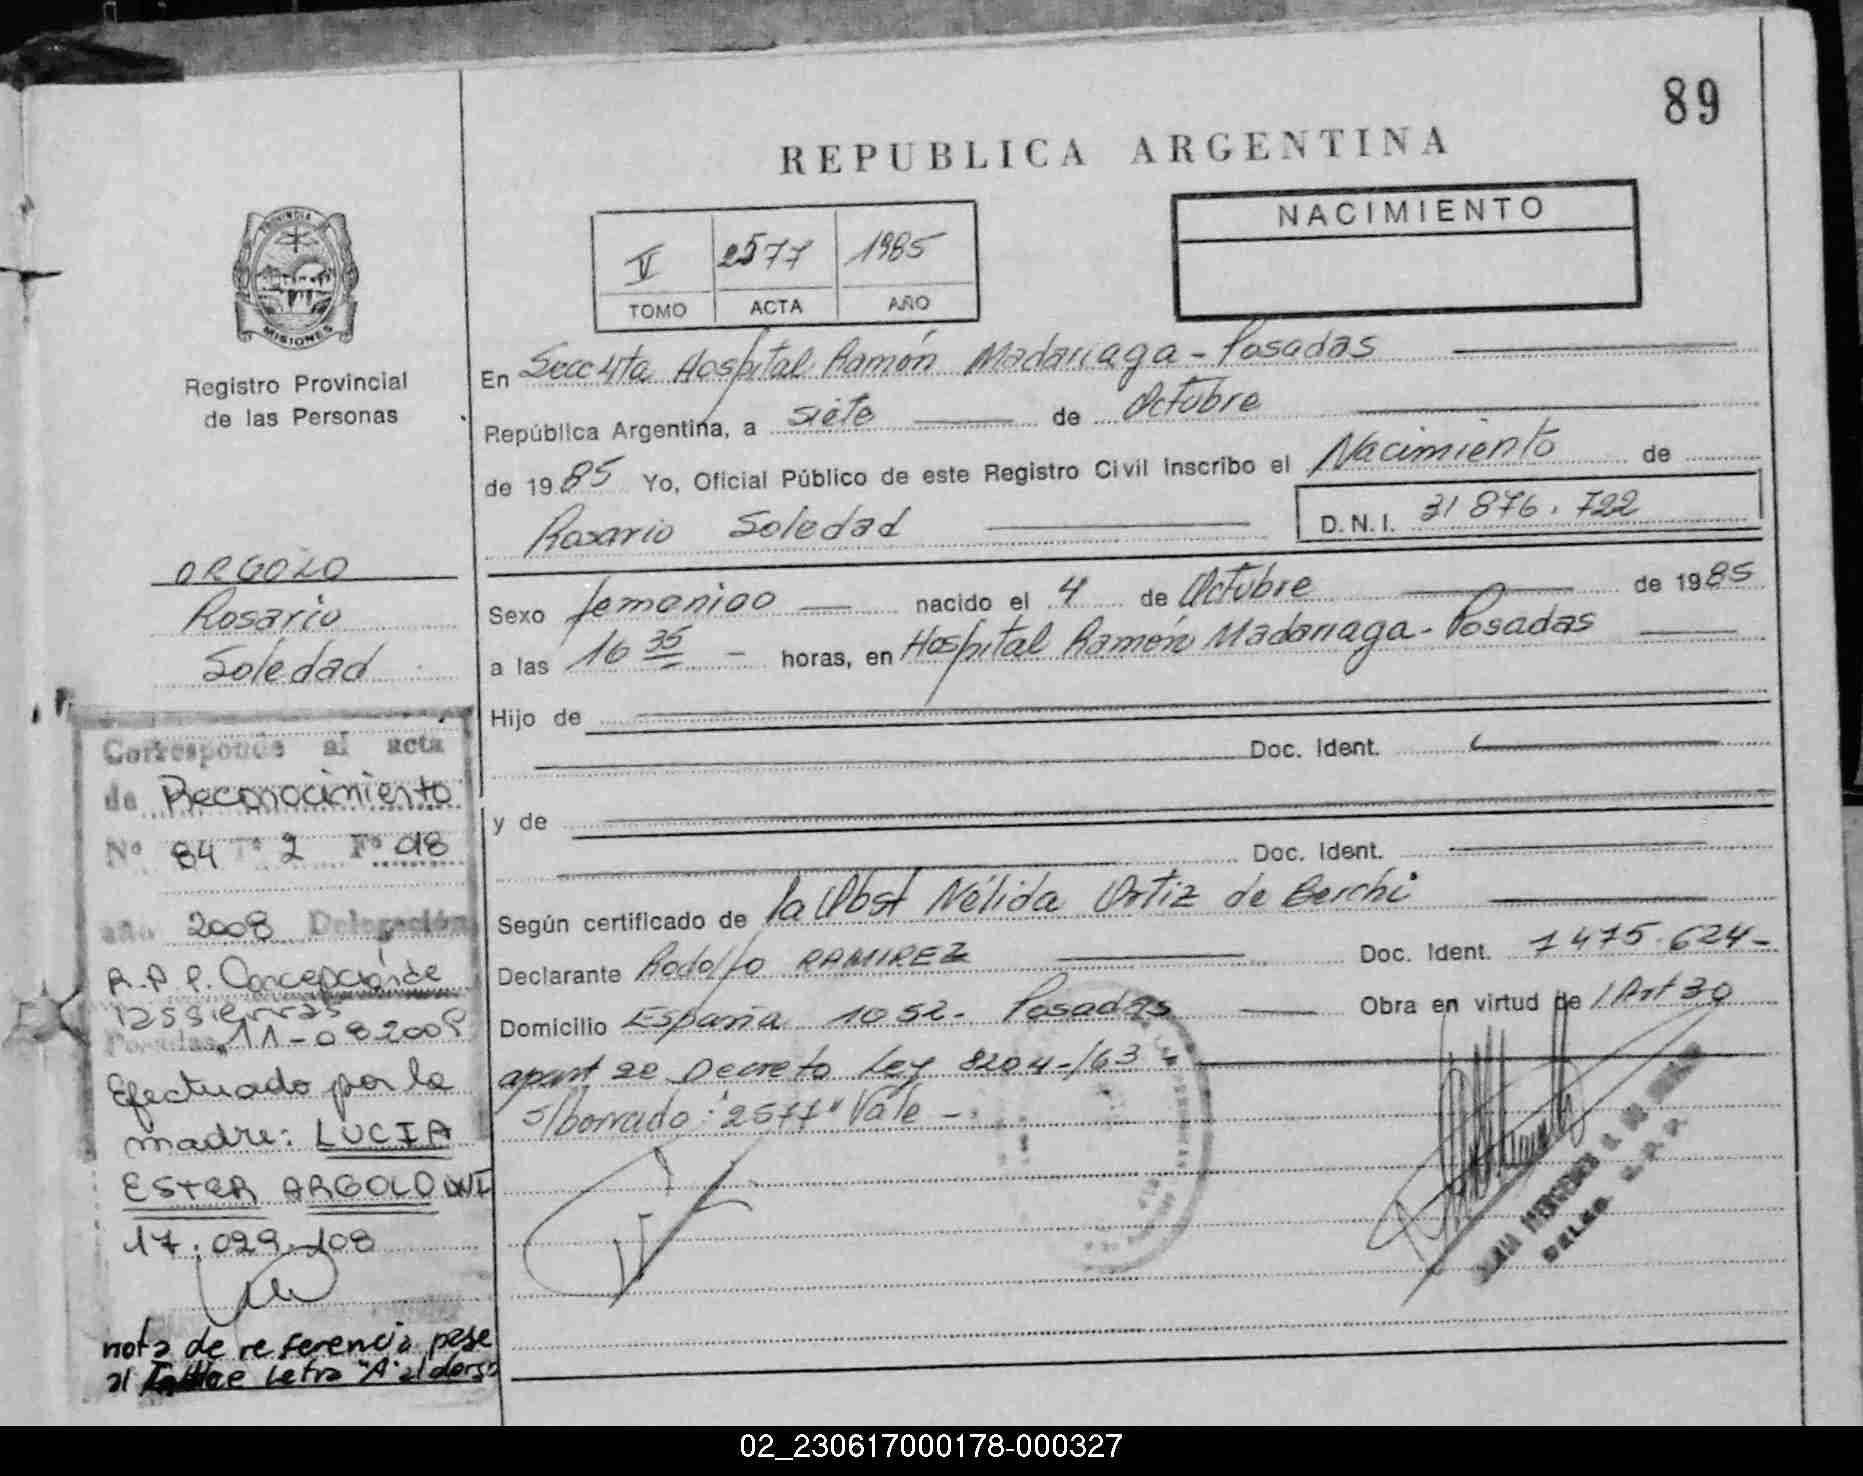 89
REPUBLICA ARGENTINA
V 2577 1985
TOMO ACTA AÑO
NACIMIENTO
PROVINCIA
MISIONES
Registro Provincial
de las Personas
ORGOLO
Rosario
Soledad
En Secc 4ta Hospital Ramón Madariaga - Posadas
República Argentina, a siete de Octubre
de 1985 Yo, Oficial Público de este Registro Civil inscribo el Nacimiento de
Rosario Soledad D.N.I. 31 876.722
Sexo femenino nacido el 4 de Octubre de 1985
a las 16 35 - horas, en Hospital Ramón Madariaga - Posadas
Hijo de
Doc. Ident.
y de
Doc. Ident.
Según certificado de la Obst Nélida Ortiz de Berchi
Declarante Rodolfo RAMIREZ Doc. Ident. 7475.624-
Domicilio España 1052- Posadas Obra en virtud de / Art 30
apart 2e Decreto Ley 8204-/63-
s/borrado: "2577" Vale -
Corresponde al acta
de Reconocimiento
Nº 84 Tº 2 Fº 018
año 2008 Delegación
R.P.P. Concepción de
la sierras
Posadas, 11-08 2008
Efectuado por la
madre: LUCIA
ESTER ARGOLO DNI
17.029.108
nota de referencia pase
al Indice Letra "A" al dorso
02_230617000178-000327